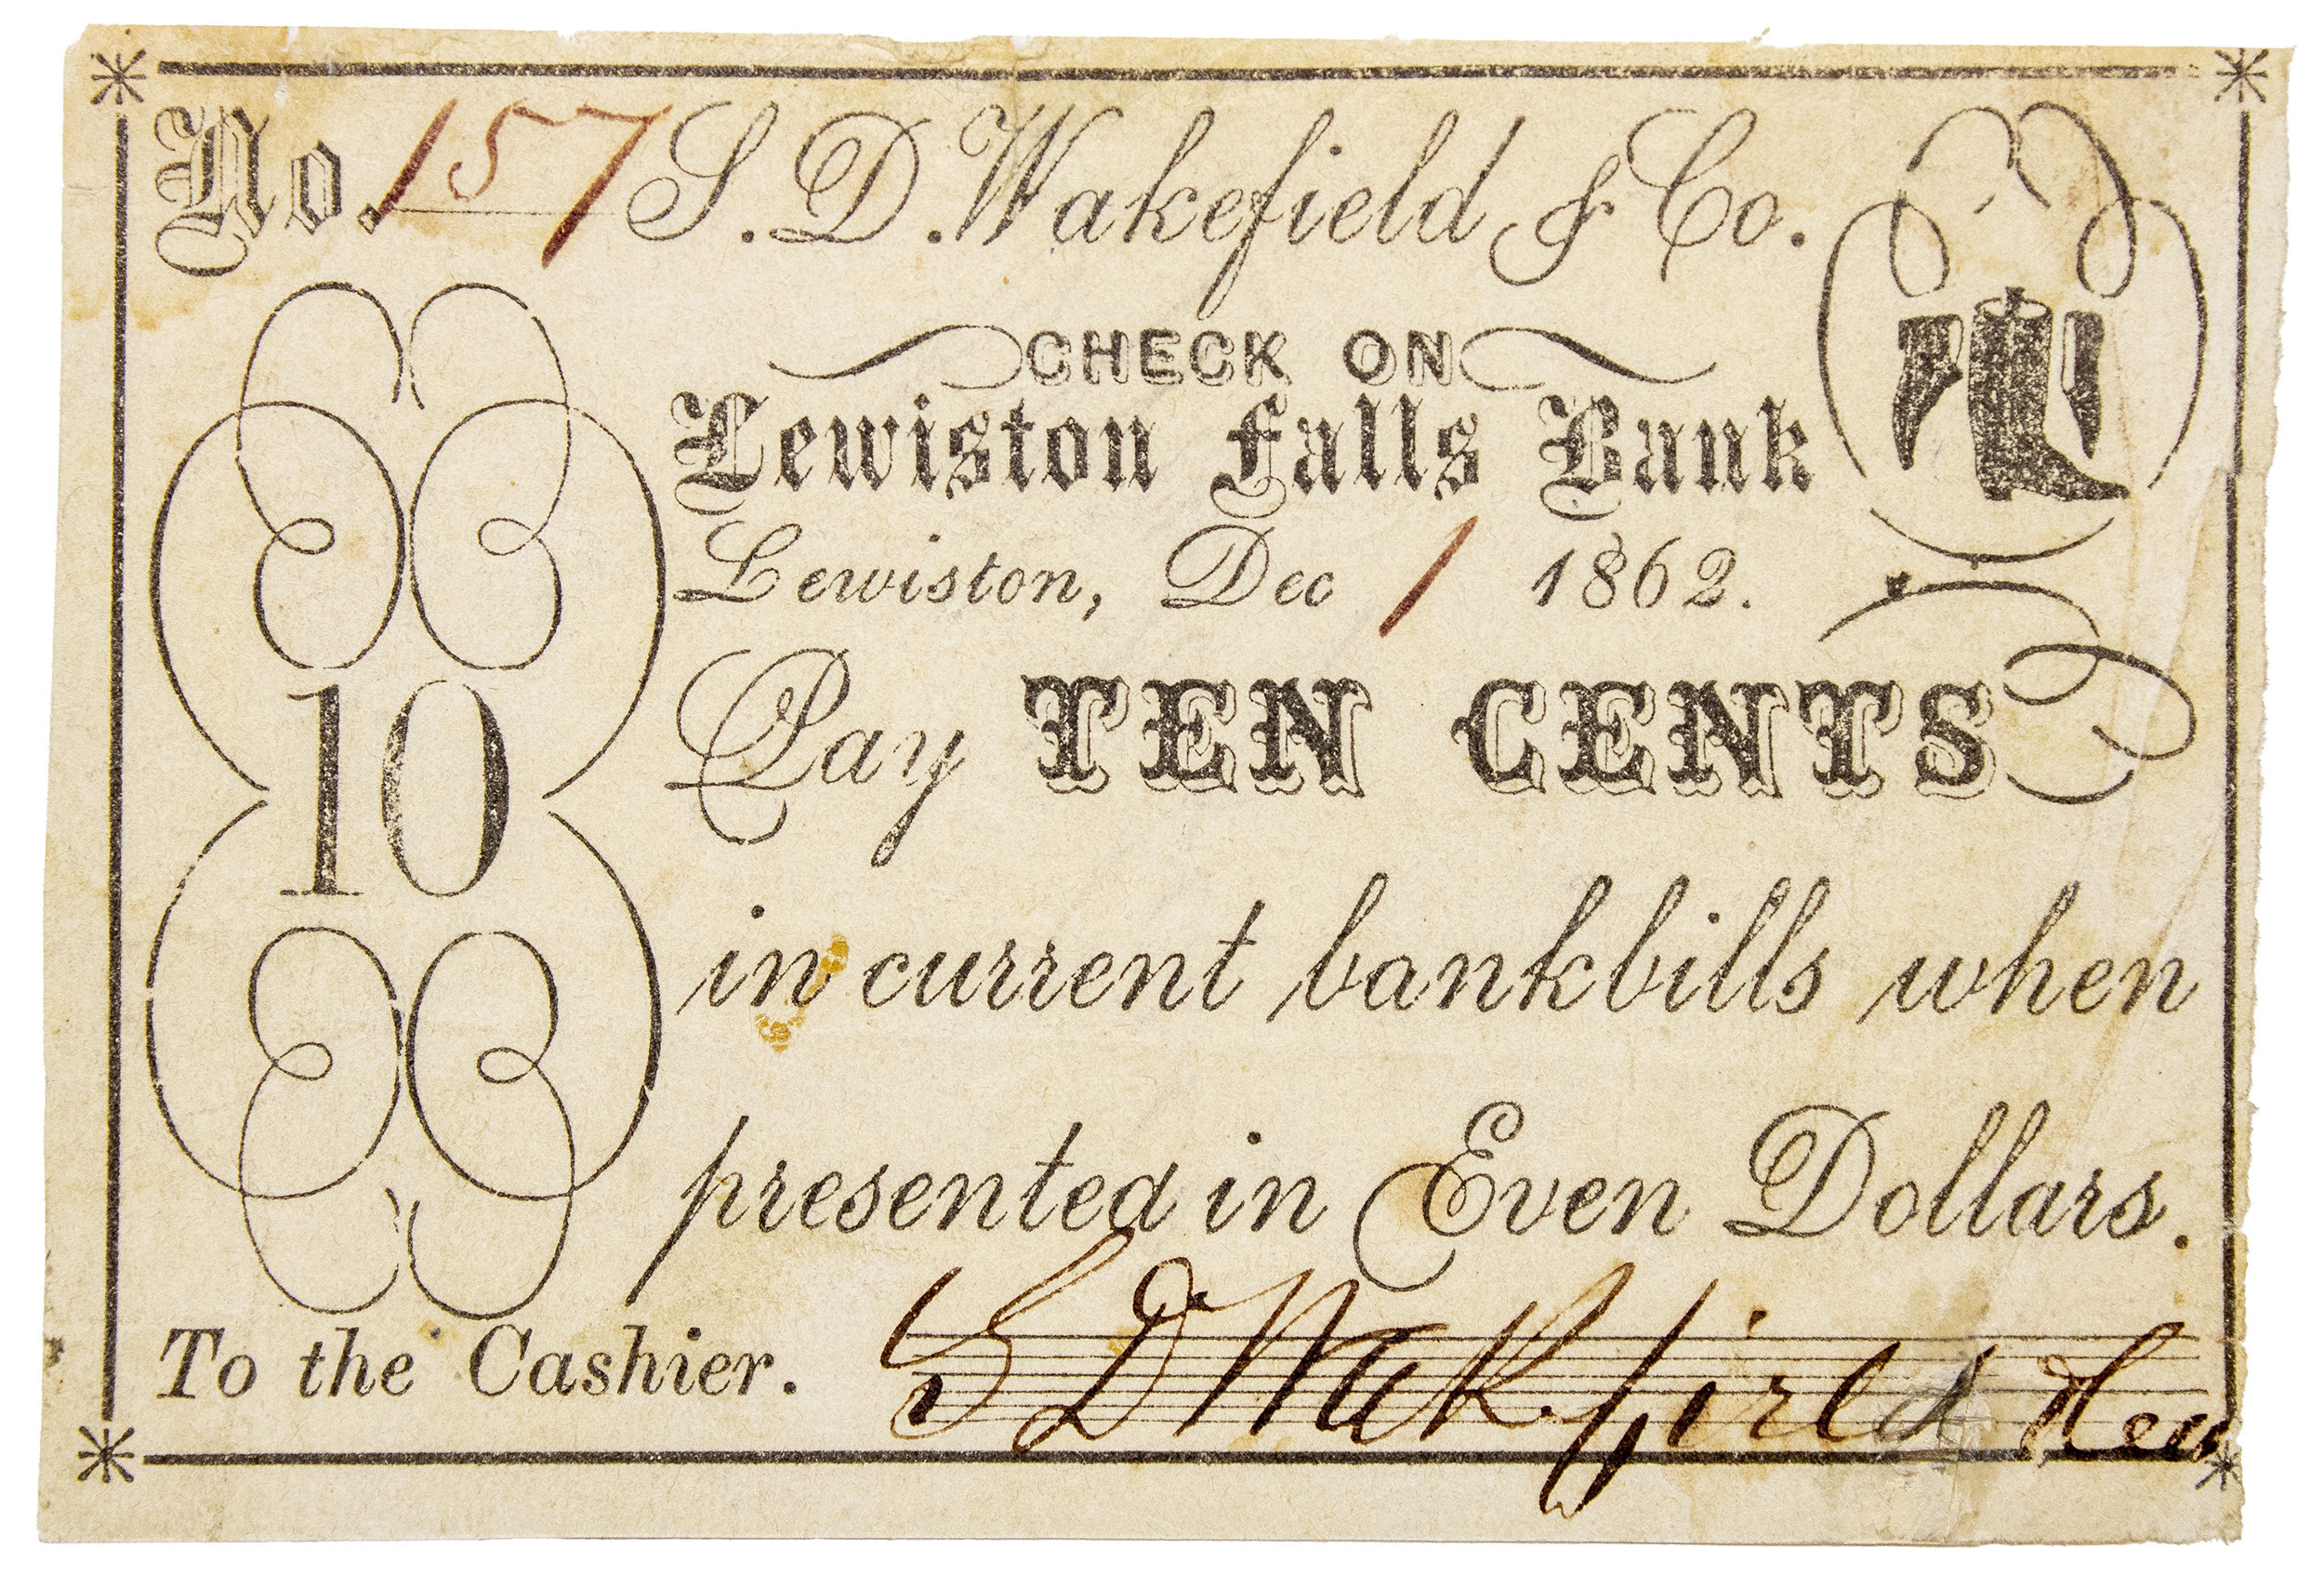 No. 157 S. D. Wakefield & Co.
CHECK ON
Lewiston Falls Bank
Lewiston, Dec 1 1862.
10
Pay TEN CENTS
in current bankbills when
presented in Even Dollars.
To the Cashier. S D Wakefield